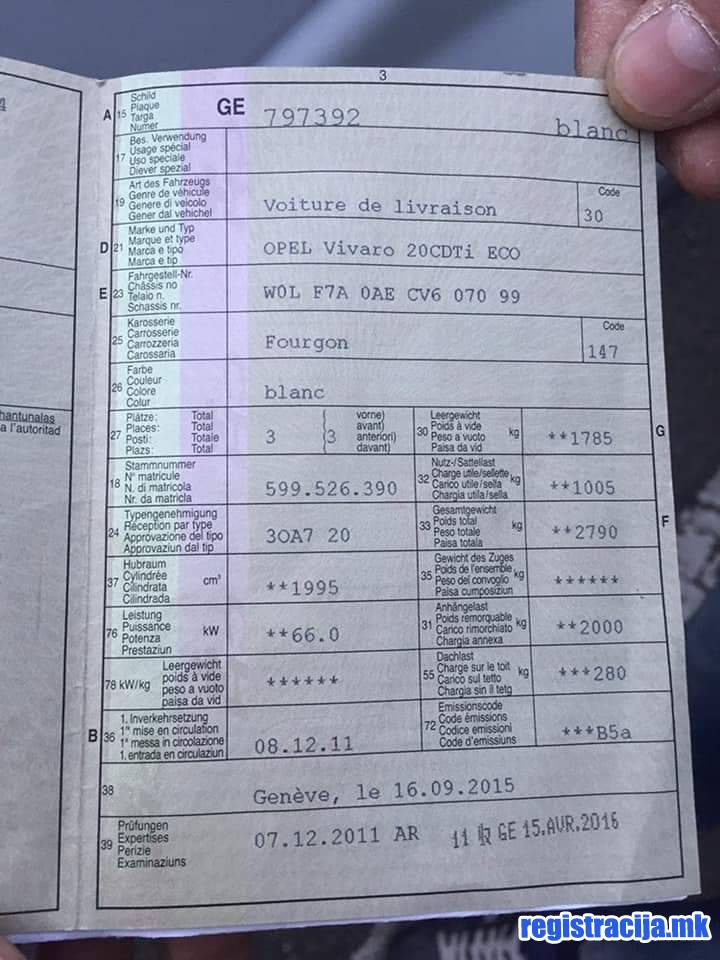 3
A 15 Schild
Plaque
Targa
Numer
GE 797392 blanc
17 Bes. Verwendung
Usage spécial
Uso speciale
Diever spezial
19 Art des Fahrzeugs
Genre de véhicule
Genere di veicolo
Gener dal vehichel
Voiture de livraison
Code
30
D 21 Marke und Typ
Marque et type
Marca e tipo
Marca e tip
OPEL Vivaro 20CDTi ECO
E 23 Fahrgestell-Nr.
Châssis no
Telaio n.
Schassis nr.
W0L F7A 0AE CV6 070 99
25 Karosserie
Carrosserie
Carrozzeria
Carossaria
Fourgon
Code
147
26 Farbe
Couleur
Colore
Colur
blanc
27 Plätze: Total
Places: Total
Posti: Totale
Plazs: Total
3 (3
vorne)
avant)
anteriori)
davant)
30 Leergewicht
Poids à vide
Peso a vuoto
Paisa da vid
kg
**1785
G
18 Stammnummer
N° matricule
N. di matricola
Nr. da matricla
599.526.390
32 Nutz-/Sattellast
Charge utile/sellette
Carico utile/sella
Chargia utila/sella
kg
**1005
24 Typengenehmigung
Réception par type
Approvazione del tipo
Approvaziun dal tip
3OA7 20
33 Gesamtgewicht
Poids total
Peso totale
Paisa totala
kg
**2790
F
37 Hubraum
Cylindrée
Cilindrata
Cilindrada
cm³
**1995
35 Gewicht des Zuges
Poids de l'ensemble
Peso del convoglio
Paisa cumposiziun
kg
******
76 Leistung
Puissance
Potenza
Prestaziun
kW
**66.0
31 Anhängelast
Poids remorquable
Carico rimorchiato
Chargia annexa
kg
**2000
78 kW/kg
Leergewicht
poids à vide
peso a vuoto
paisa da vid
******
55 Dachlast
Charge sur le toit
Carico sul tetto
Chargia sin il tetg
kg
***280
B 36 1. Inverkehrsetzung
1re mise en circulation
1a messa in circolazione
1. entrada en circulaziun
08.12.11
72 Emissionscode
Code émissions
Codice emissioni
Code d'emissiuns
***B5a
38
Genève, le 16.09.2015
39 Prüfungen
Expertises
Perizie
Examinaziuns
07.12.2011 AR
11 GE 15.AVR.2016
hantunalas
a l'autoritad
registracija.mk